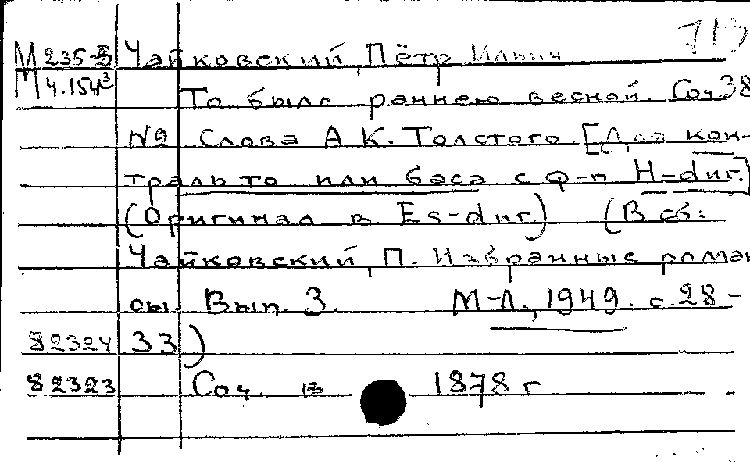 713
М 235-5 Чайковский, Пётр Ильич
М 4.154³
То было раннею весной. Соч 38
№2 Слова А К. Толстого [Для кон-
тральто или баса с ф-п H-dur.]
(Оригинал в Es-dur.) (В сб:
Чайковский, П. Избранные роман
сы. Вып. 3. М-Л., 1949. с. 28-
82324 33)
82323 Соч. в 1878 г